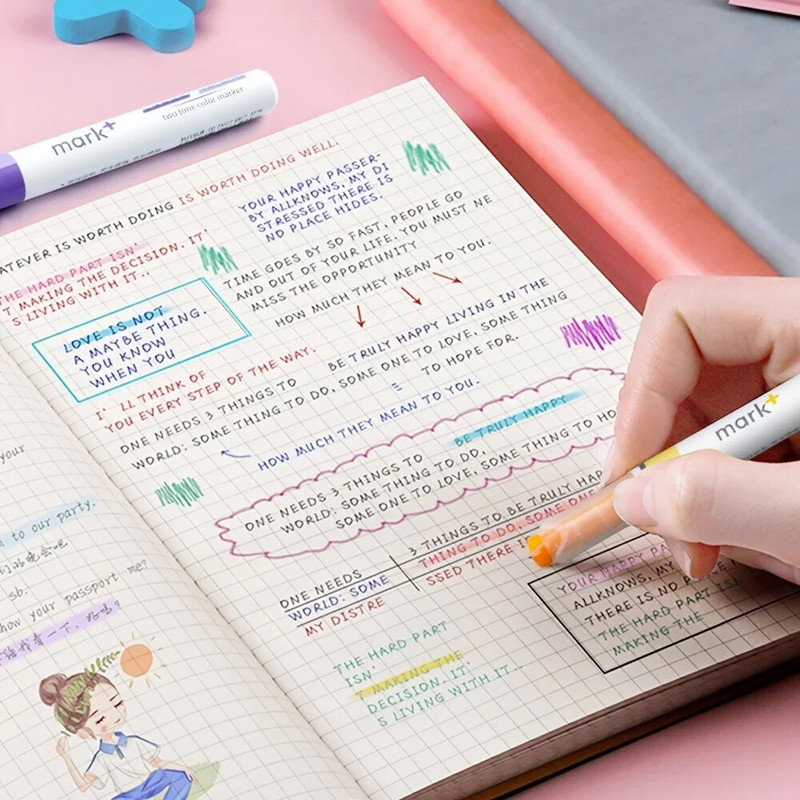 mark+
two tone color marker
ATEVER IS WORTH DOING IS WORTH DOING WELL.
THE HARD PART ISN'
T MAKING THE DECISION. IT'
S LIVING WITH IT..
YOUR HAPPY PASSER-
BY ALLKNOWS, MY DI
STRESSED THERE IS
NO PLACE HIDES.
TIME GOES BY SO FAST, PEOPLE GO
AND OUT OF YOUR LIFE. YOU MUST NE
MISS THE OPPORTUNITY
HOW MUCH THEY MEAN TO YOU.
LOVE IS NOT
A MAYBE THING.
YOU KNOW
WHEN YOU
I' LL THINK OF
YOU EVERY STEP OF THE WAY.
BE TRULY HAPPY LIVING IN THE
ONE NEEDS 3 THINGS TO
WORLD: SOME THING TO DO, SOME ONE TO LOVE, SOME THING
TO HOPE FOR.
HOW MUCH THEY MEAN TO YOU.
BE TRULY HAPPY
ONE NEEDS 3 THINGS TO
WORLD: SOME THING TO DO,
SOME ONE TO LOVE, SOME THING TO HO
3 THINGS TO BE TRULY HAP
THING TO DO, SOME ONE
SSED THERE I
ONE NEEDS
WORLD: SOME
MY DISTRE
YOUR HAPPY PA
ALLKNOWS, MY
THERE IS NO
THE HARD PART IS
MAKING THE
THE HARD PART
ISN'
T MAKING THE
DECISION. IT'
S LIVING WITH IT..
your
to our party.
sb.
how your passport me?
mark+